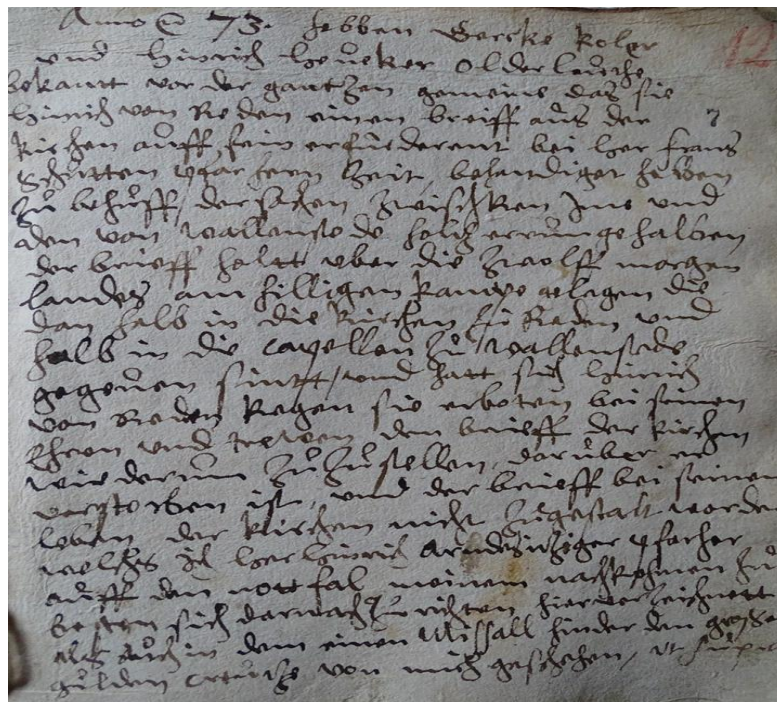 Anno 73. hebben Gercke Koler
12
und Hinrich Heuker Olderleuthe
bekant vor der gantzen gemeine das sie
Hinrich von Reden einen breiff aus der
Kirchen auff sein erfurderent bei Her Frans
Schutten pfarhern Zeit, behendiget hebben
Zu behuff, der sachen Zwischken Ime und
den von Wallenstede halben
der brieff haltt uber die Zwolff morgen
landes am hilligen kampe gelegen die
dan halb in die Kirchen Zu Reden und
halb in die Capellen Zu Wallenstede
gegeven sintt, und hatt sich Hinrich
von Reden kegen sie erboten bei seinen
Ehren und trewen den brieff der Kirchen
wiederum ZuZustellen, daruber er
verstorben ist, und der brieff bei seinem
leben der Kirchen nicht Zugestalt worden
welchs ich Her Hinrich Arndes itziger pfarher
auff den nottfal meinem nachkohmen Zum
besten sich darnach Zu richten hier verzeichnett
als auch in dem einen Missall hinder den grossen
gulden Creutze von mich geschehen, ut supra